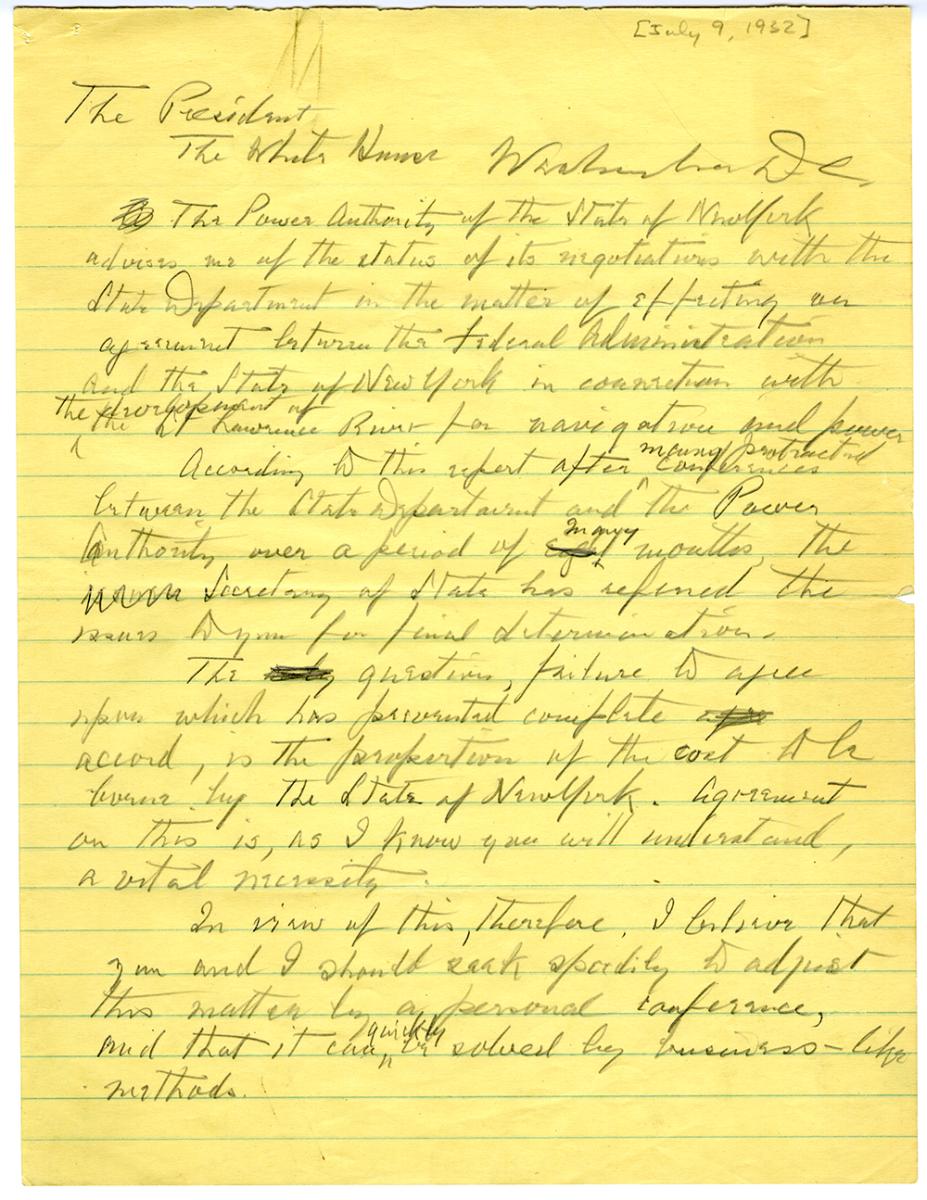 [July 9, 1932]
The President
The White House Washington D C.
The Power Authority of the State of New York
advises me of the status of its negotiations with the
State Department in the matter of effecting an
agreement between the Federal Administration
and the State of New York in connection with
the development of
the St Lawrence River for navigation and power
According to this report after many protracted conferences
between the State Department and the Power
Authority over a period of many months, the
Secretary of State has referred the
issues to you for final determination.
The question, failure to agree
upon which has prevented complete
accord, is the proportion of the cost to be
borne by the State of New York. Agreement
on this is, as I know you will understand,
a vital necessity.
In view of this, therefore, I believe that
you and I should seek speedily to adjust
this matter by a personal conference,
and that it can quickly be solved by business-like
methods.